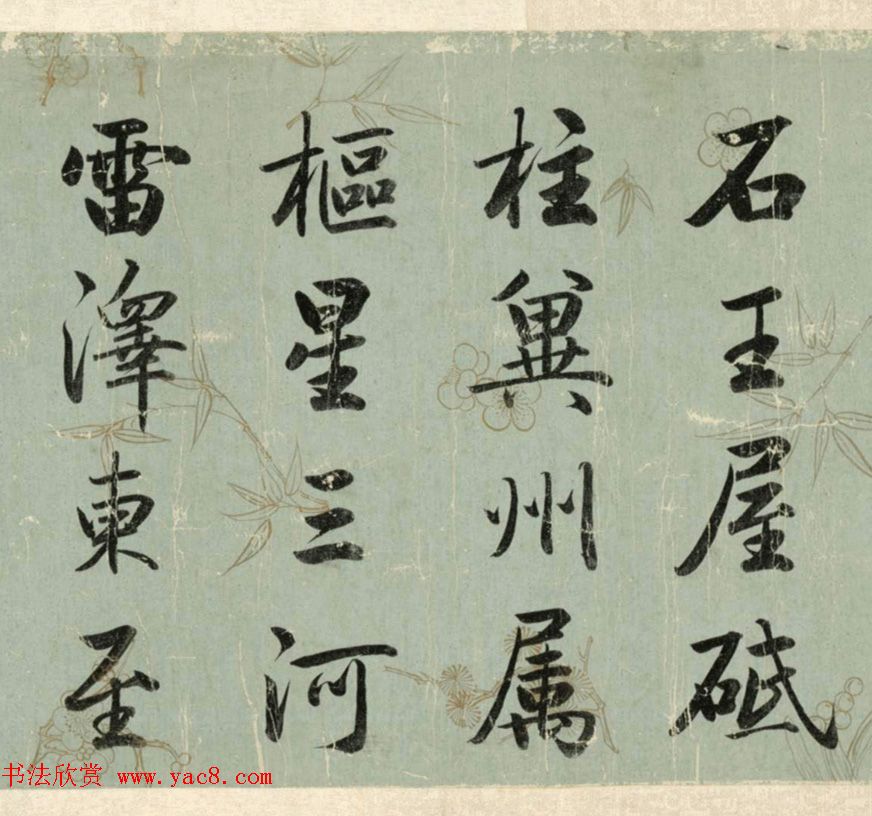 石王屋砥
柱冀州属
樞星三河
雷澤東至
书法欣赏 www.yac8.com